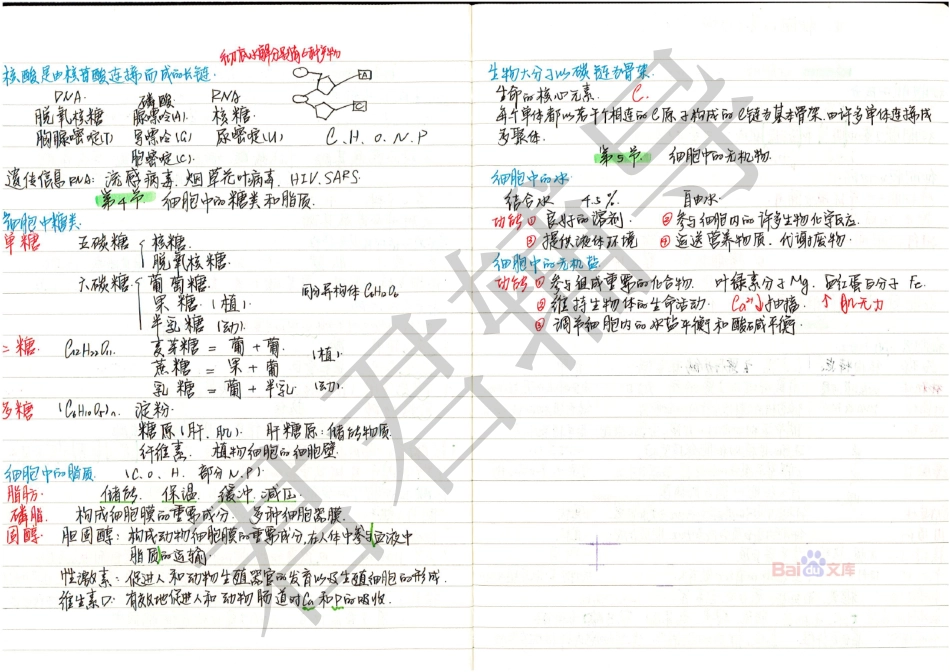 彻底水解分别有6种产物
核酸是由核苷酸连接而成的长链.
DNA. 磷酸 RNA
脱氧核糖 腺嘌呤(A). 核糖.
胸腺嘧啶(T) 鸟嘌呤(G) 尿嘧啶(U) C. H. O. N. P
胞嘧啶(C).
A
C
遗传信息RNA: 流感病毒. 烟草花叶病毒. HIV. SARS.
第4节 细胞中的糖类和脂质.
细胞中糖类.
单糖 五碳糖 核糖.
脱氧核糖.
六碳糖 葡萄糖. 同分异构体 C6H12O6
果糖. (植).
半乳糖 (动).
二糖. C12H22O11. 麦芽糖 = 葡 + 葡. (植).
蔗糖 = 果 + 葡
乳糖 = 葡 + 半乳 (动).
多糖 (C6H10O5)n. 淀粉.
糖原(肝、肌). 肝糖原:储能物质.
纤维素. 植物细胞的细胞壁.
细胞中的脂质. (C. O. H. 部分N. P).
脂肪. 储能. 保温. 缓冲. 减压.
磷脂. 构成细胞膜的重要成分. 多种细胞器膜.
固醇. 胆固醇: 构成动物细胞膜的重要成分,在人体中参与血液中
脂质的运输.
性激素: 促进人和动物生殖器官的发育以及生殖细胞的形成.
维生素D: 有效地促进人和动物肠道对Ca和P的吸收.
生物大分子以碳链为骨架.
生命的核心元素. C.
每个单体都以若干个相连的C原子构成的C链为基本骨架.由许多单体连接成
多聚体.
第5节. 细胞中的无机物.
细胞中的水
结合水 4.5%. 自由水.
功能 ① 良好的溶剂. ② 参与细胞内的许多生物化学反应.
③ 提供液体环境 ④ 运送营养物质、代谢废物.
细胞中的无机盐
功能 ① 参与组成重要的化合物. 叶绿素分子Mg. 血红蛋白分子 Fe.
② 维持生物体的生命活动. Ca²⁺↓抽搐. ↑肌无力
③ 调节细胞内的水盐平衡和酸碱平衡.
君君辅导
Baidu文库